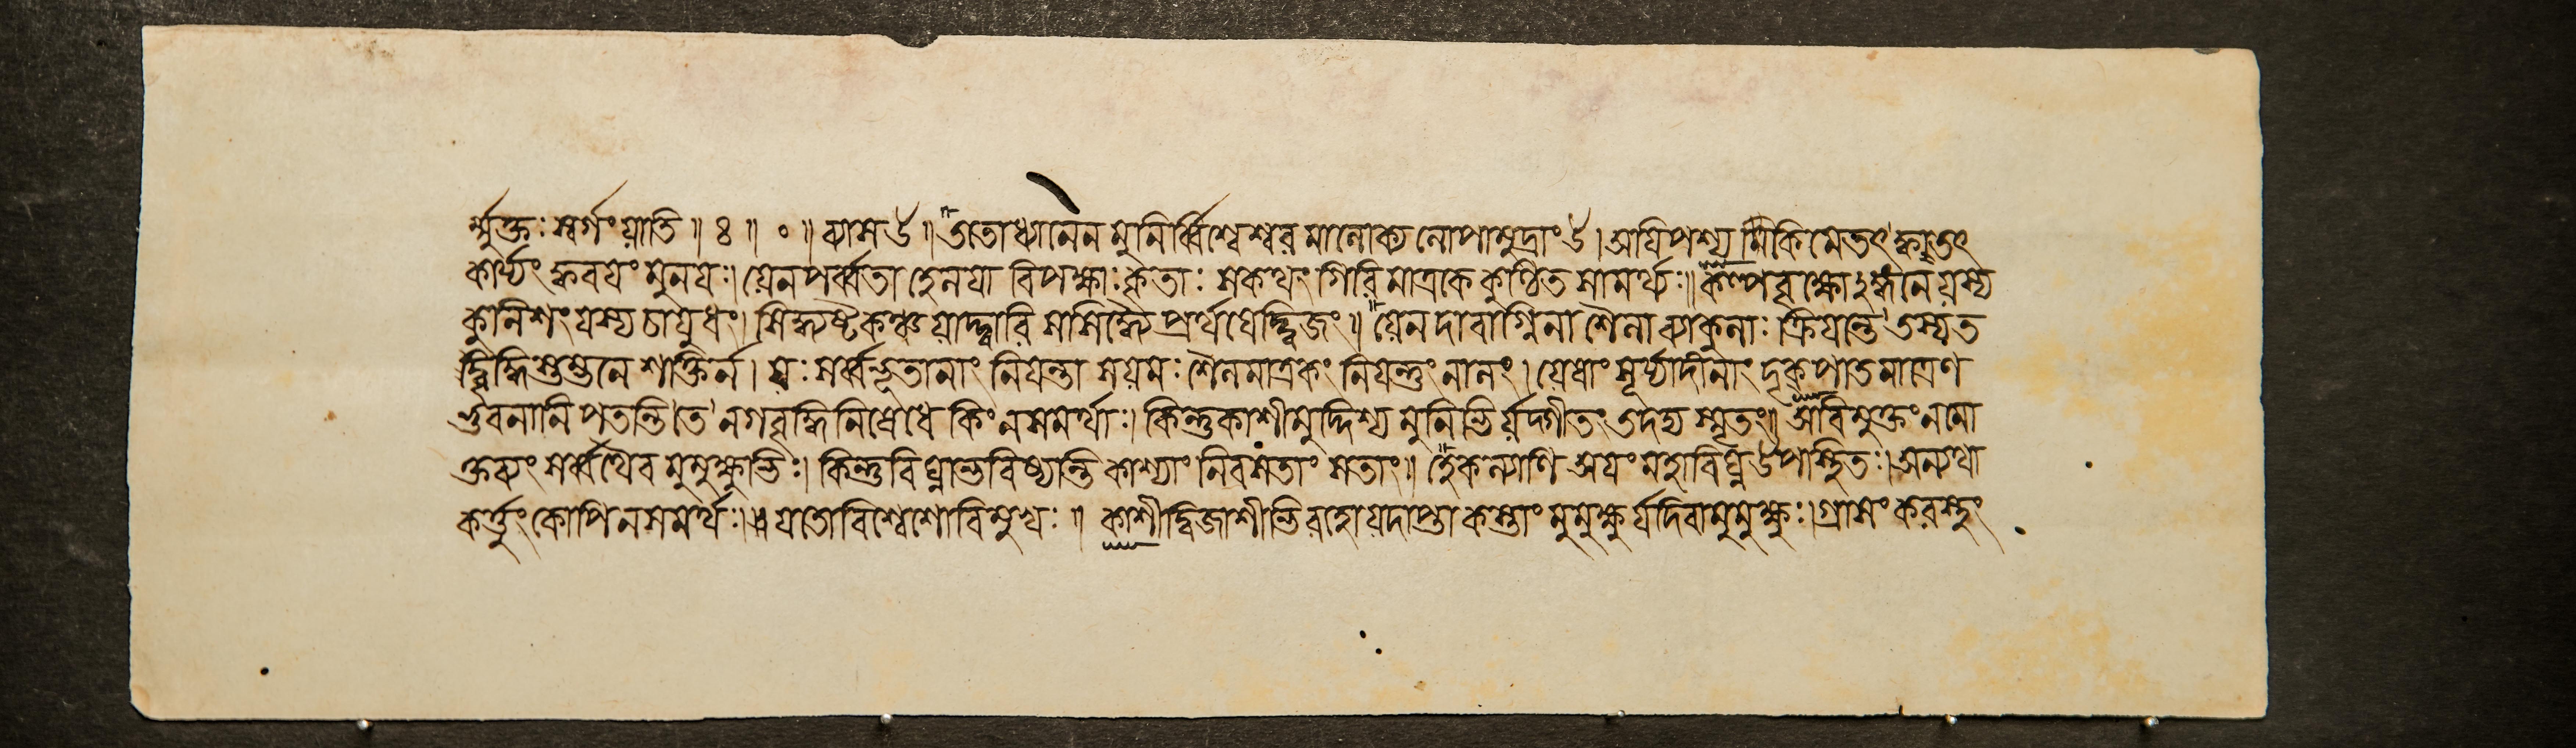 র্ম্মুক্তঃ স্বর্গং যাতি ॥ ৪ ॥ ० ॥ ব্যাসউ ॥ ততোধ্যানেন মুনির্ব্বিশ্বেশ্বরমালোক্য লোপামুদ্রাংউ । অযি পশ্য কিমেতৎ
কার্য্যং ক্ববযং মুনযঃ। যেনপর্ব্বতা হেলযা বিপক্ষাঃ কৃতাঃ সকথং গিরিমাত্রকে কুণ্ঠিতসামর্থ্যঃ॥ কল্পবৃক্ষোঽঙ্গনেযস্য
কুলিশং যস্য চাযুধং। সিদ্ধ্যষ্টকঞ্চ যদ্দ্বারি সসিদ্ধ্যৈ প্রার্থযেদ্দ্বিজং॥ যেনদাবাগ্নিনা শৈলা ব্যাকুলাঃ ক্রিযন্তে তস্য ত
দ্বৃদ্ধিস্তম্ভনে শক্তির্ন। যঃ সর্ব্বভূতানাং নিযন্তা সযমঃ শৈলমাত্রকং নিযন্তুং নালং। যেষাং সূর্য্যাদীনাং দৃক্পাতমাত্রেণ
র্ভুবনানি পতন্তি তে নগবৃদ্ধিনিষেধে কিং ন সমর্থাঃ। কিন্তু কাশীমুদ্দিশ্য মুনিভির্যদ্গীতং তদদ্য স্মৃতং॥ অবিমুক্তং নমো
ক্তব্যং সর্ব্বথৈব মুমুক্ষুভিঃ। কিন্তু বিঘ্নাভবিষ্যন্তি কাশ্যাং নিবসতাং সতাং॥ হেকল্যাণি অযং মহাবিঘ্নউপস্থিতঃ। অন্যথা
কর্ত্তুং কোপি ন সমর্থঃ। যতো বিশ্বেশো বিমুখঃ ॥ কাশীদ্বিজাশীর্ভিরহো যদাপ্তা কস্তাং মুমুক্ষুর্যদিবামুমুক্ষুঃ। গ্রাসং করস্থং